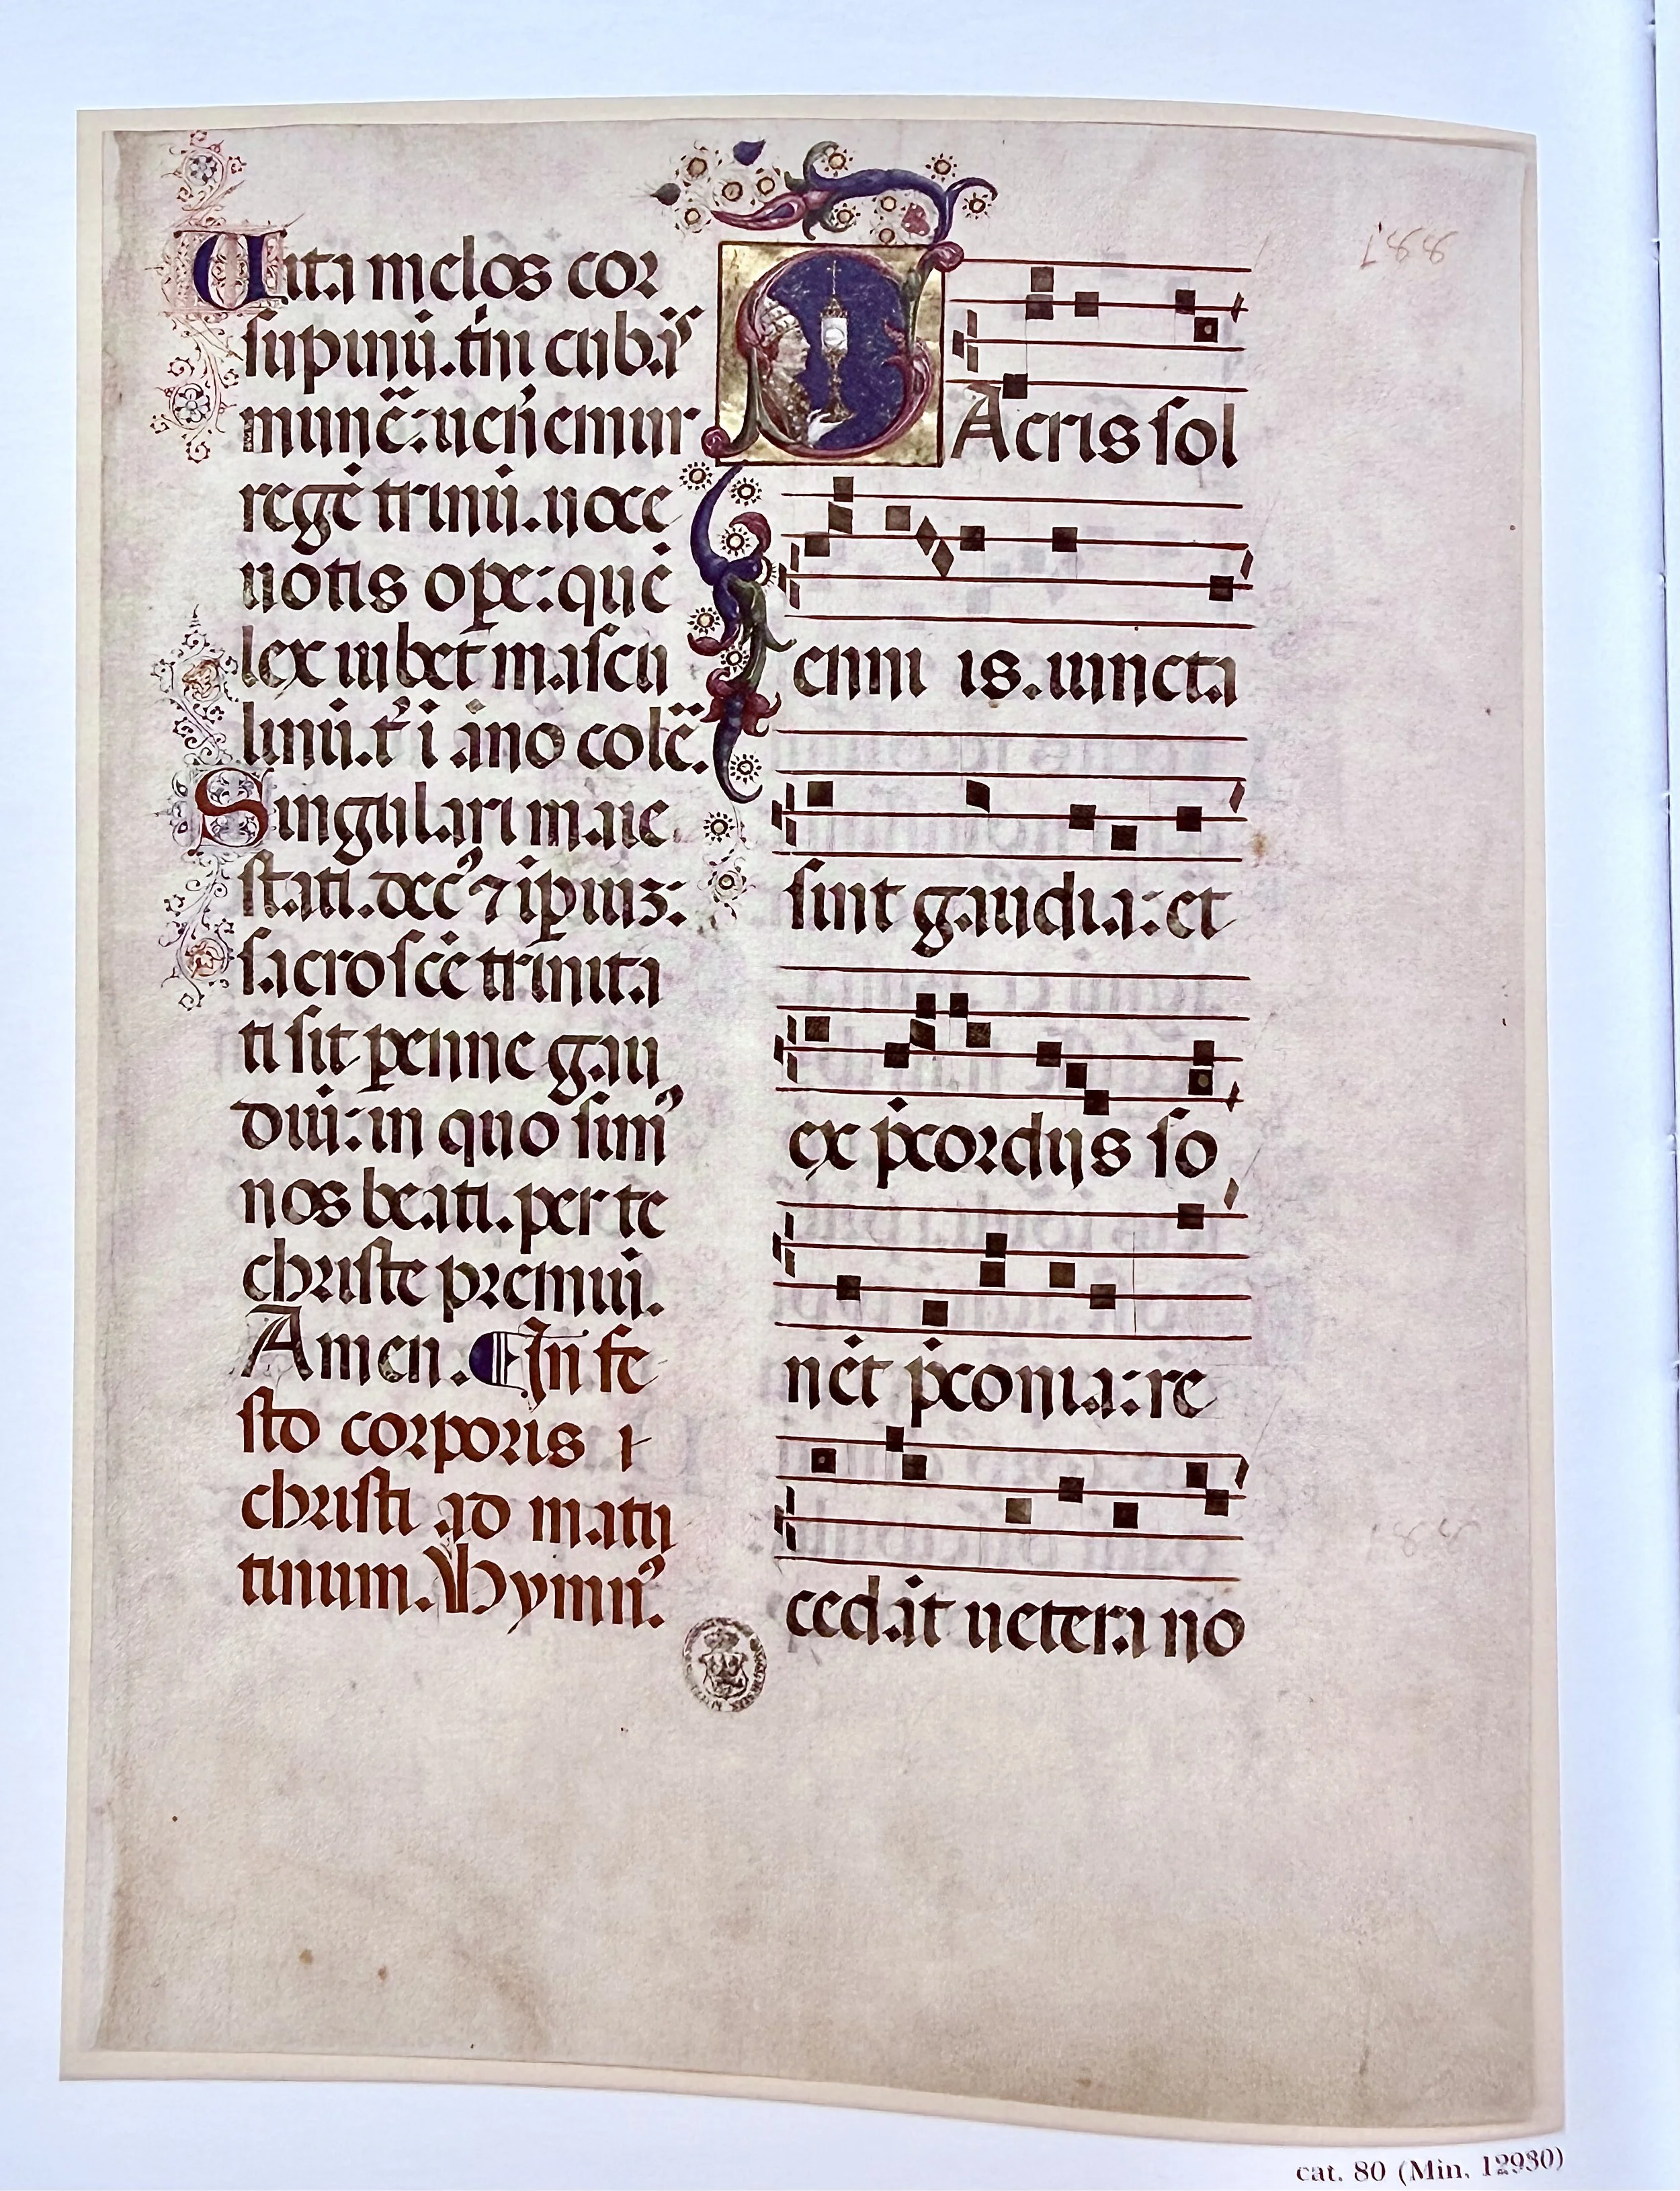 Uita melos cor
supinũ.tñi cub.iˢ
munẽ:uen̾emur
regẽ trinũ.uoce
uotis ope:que
lex iubet mascu
linũ.t̾ i aĩo colẽ.
Singulari maie
stati.dec⁹ ⁊ ip̃iuʒ:
sacroscẽ trinita
ti sit ꝑenne gau
diũ:in quo sim⁹
nos beati.per te
christe premiũ.
Amen. ¶In fe
sto corporis
christi ad matu
tinum. Hymn⁹.
SAcris sol
enni is.iuncta
sint gaudia:et
ex p̃cordijs so
nẽt p̃conia:re
cedãt uetera no
cat. 80 (Min. 12930)